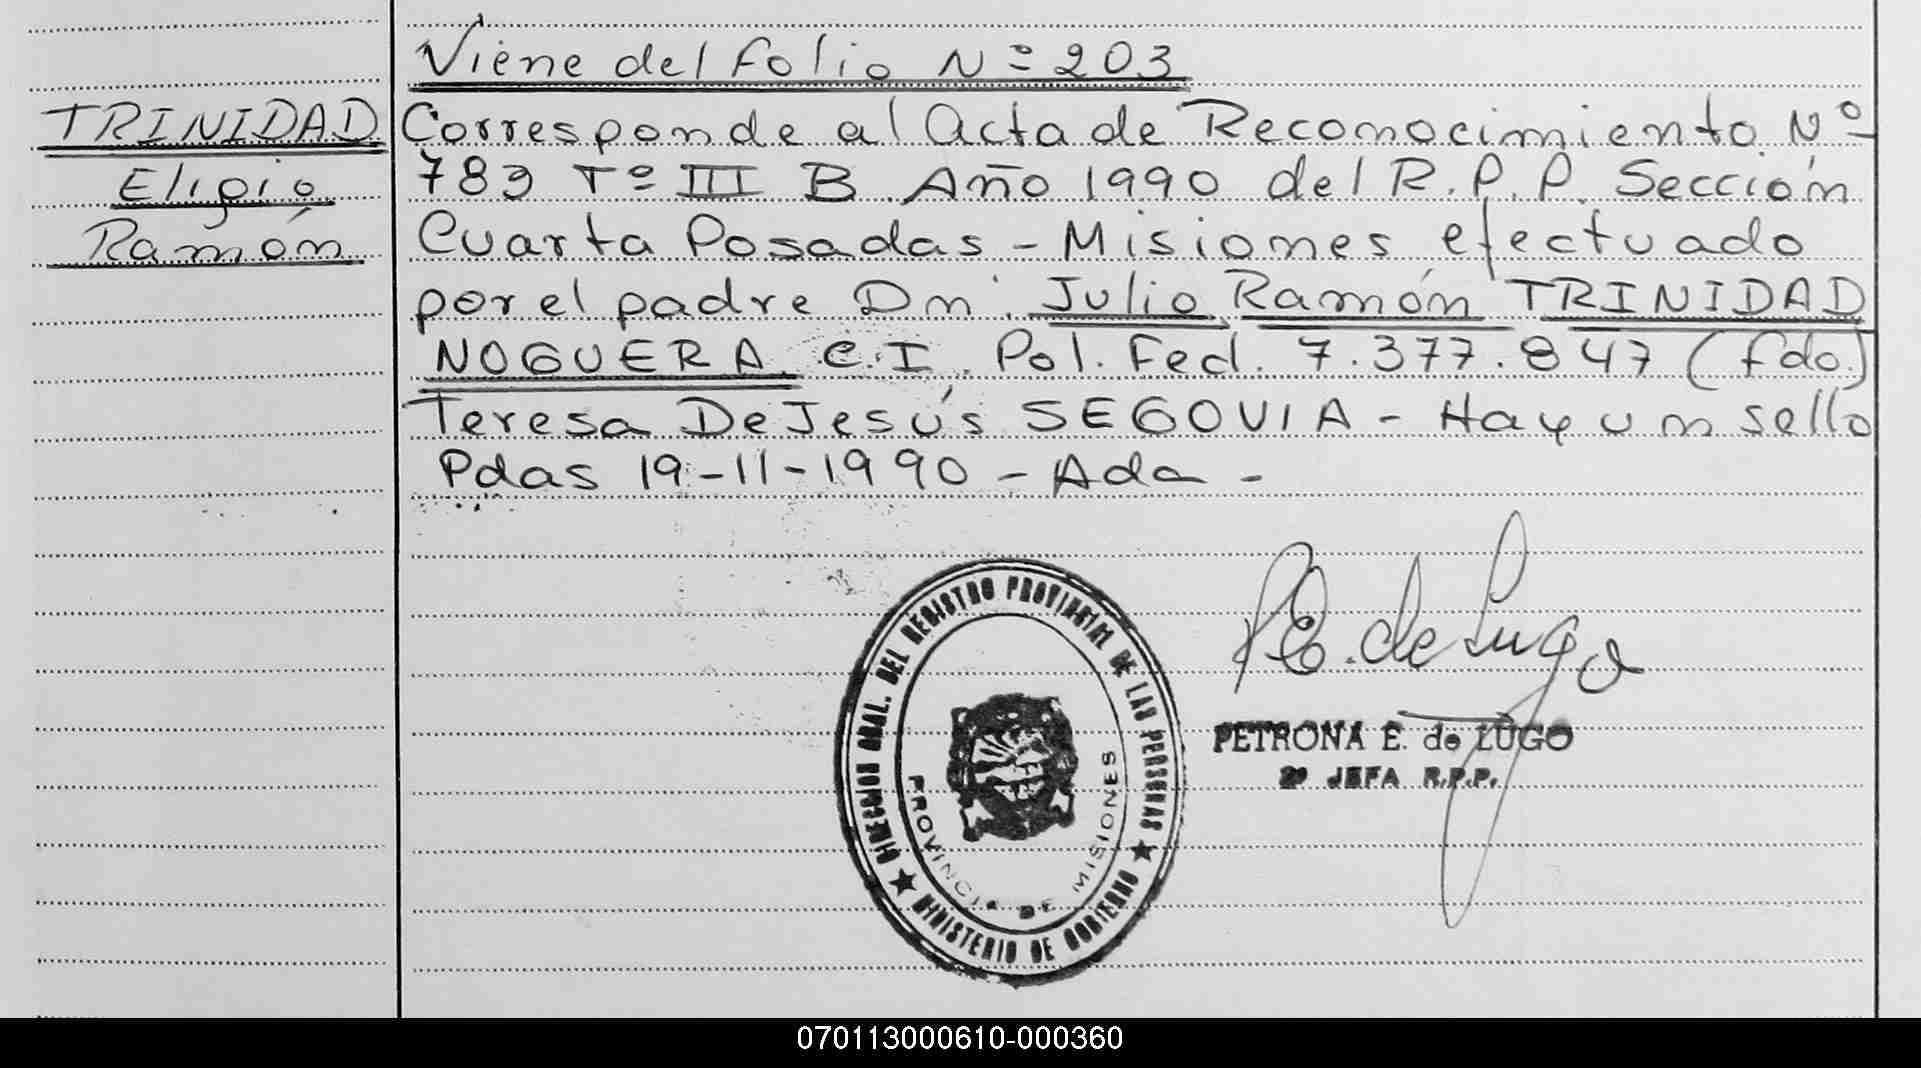 Viene del folio Nº 203
TRINIDAD
Eligio
Ramón
Corresponde al Acta de Reconocimiento Nº
783 Tº III B. Año 1990 del R.P.P. Sección
Cuarta Posadas - Misiones efectuado
por el padre Dn. Julio Ramón TRINIDAD
NOGUERA C.I. Pol. Fed. 7.377.847 (fdo.)
Teresa De Jesús SEGOVIA - Hay un sello
Pdas 19-11-1990 - Ada -
DIRECCION GRAL. DEL REGISTRO PROVINCIAL DE LAS PERSONAS
MINISTERIO DE GOBIERNO
PROVINCIA DE MISIONES
P.E. de Lugo
PETRONA E. de LUGO
2º JEFA R.P.P.
070113000610-000360